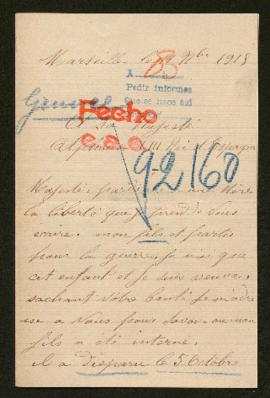 Marseille le 9bre 1918
A 8
Pedir informes
Que se hace así
Fecho
A Sa Majesté
Alphonse XIII Roi d'Espagne
92160
Majesté
la liberté que je prend vous
écrire. mon fils et partie
pour la guerre je nai que
cet enfant et je suis veuve.
sachant votre bonté je m adre
sse a Vous pour savoir ou mon
fils a été interné.
il a disparu le 5 Octobre